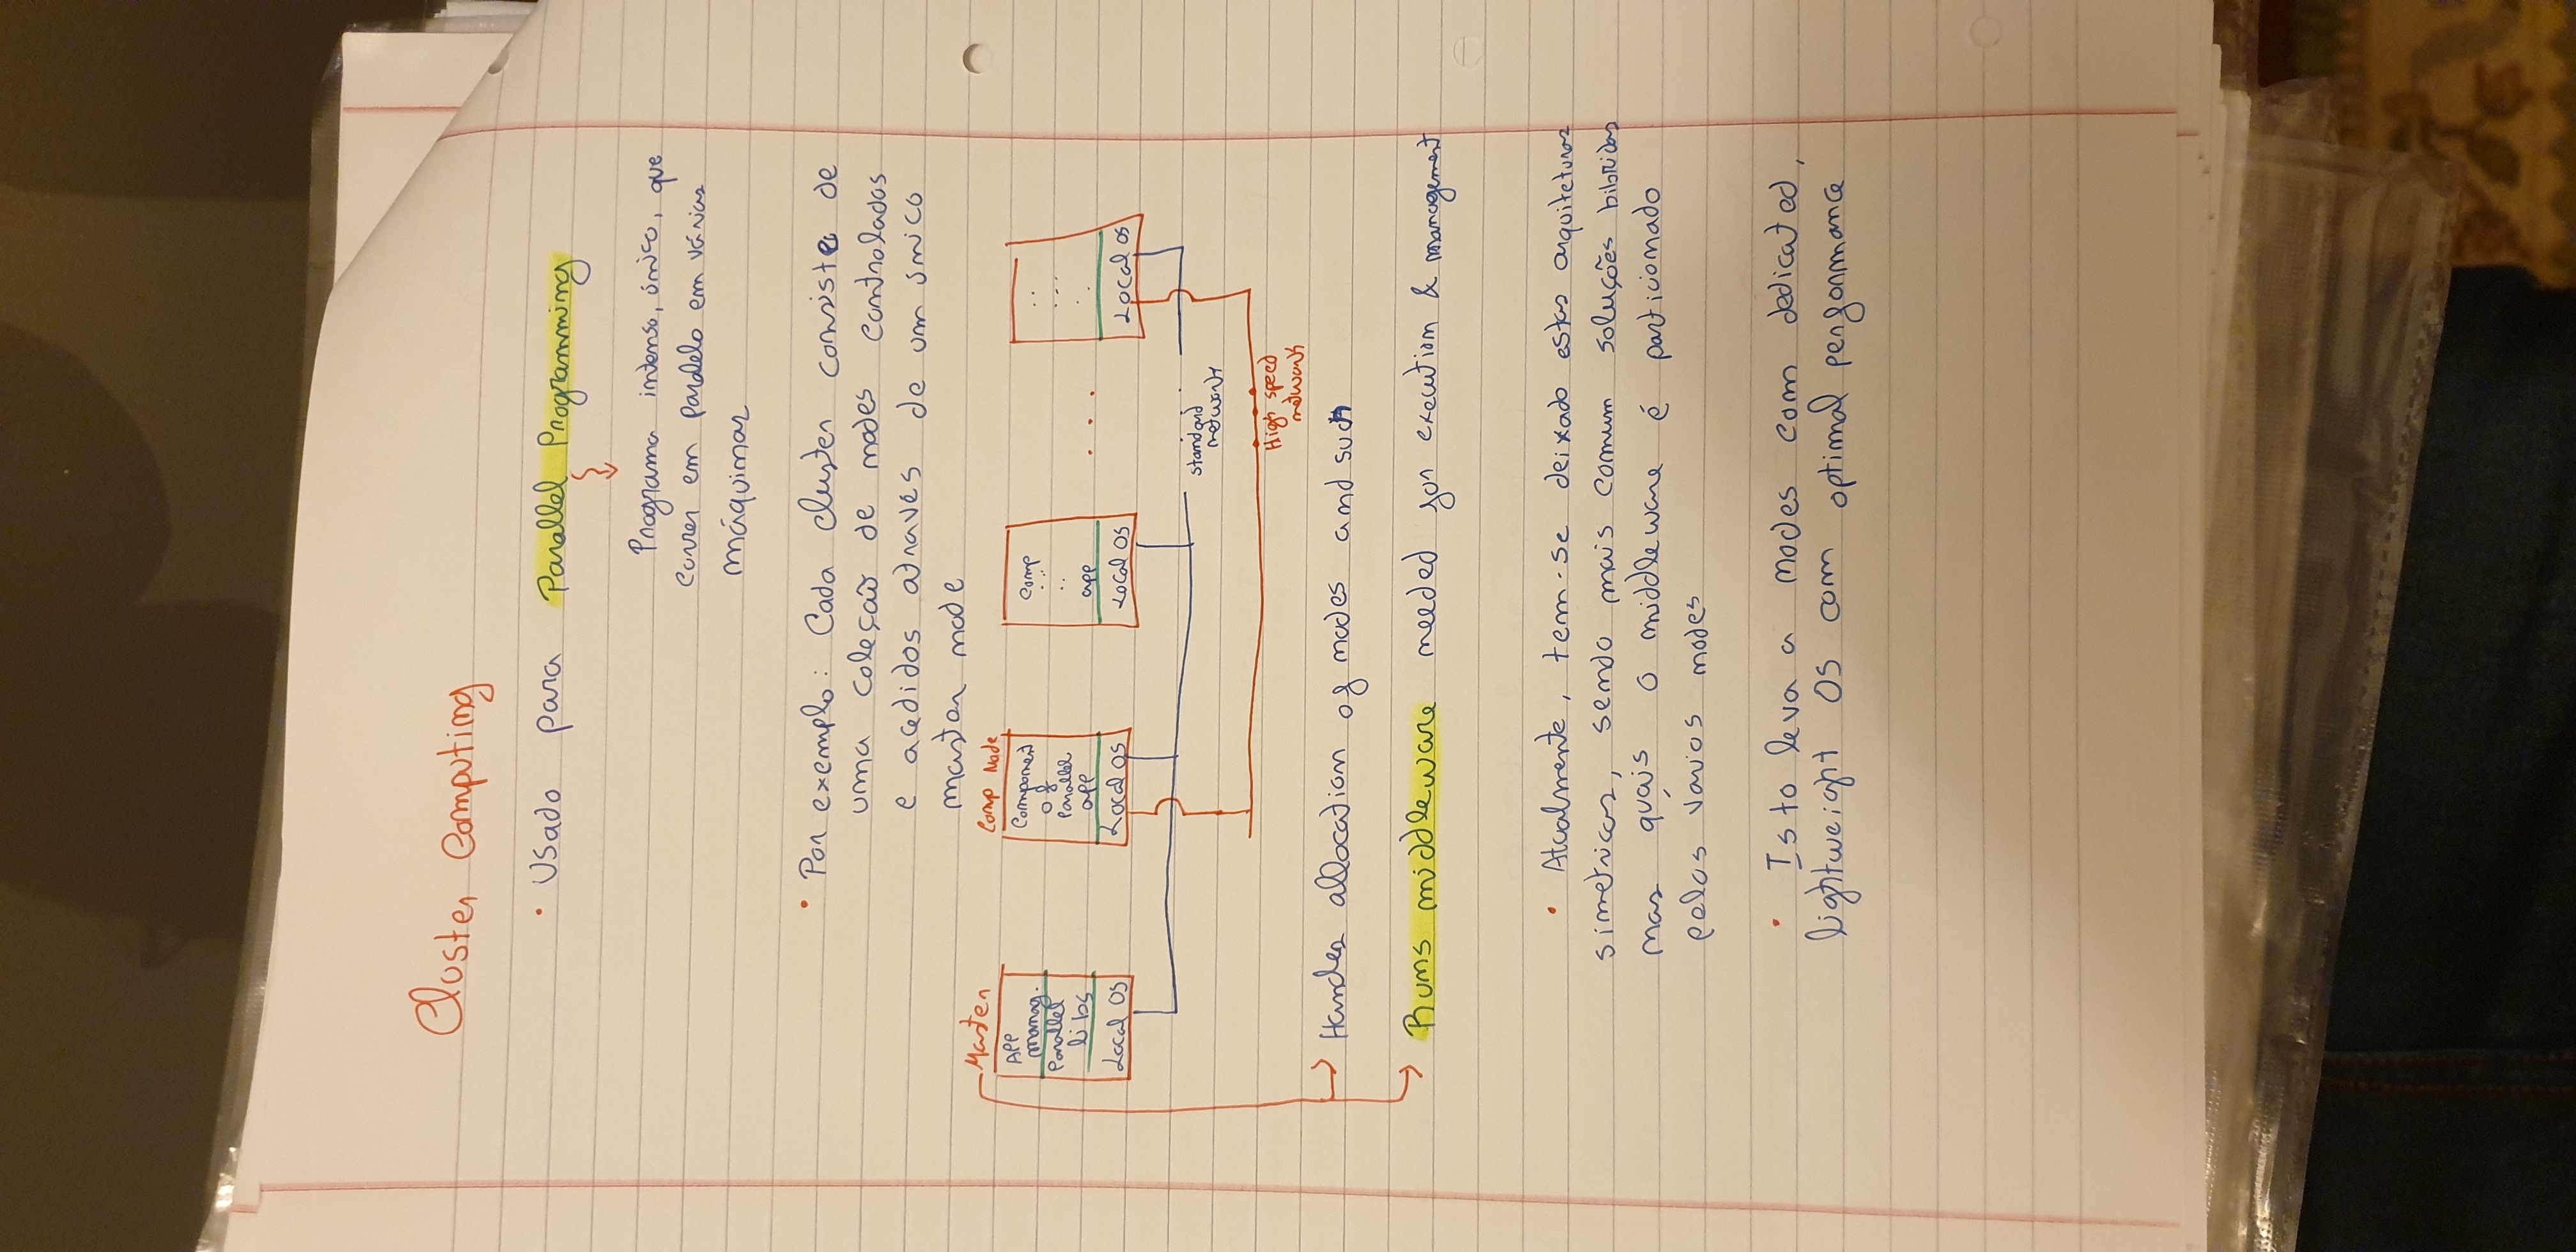 Cluster Computing
• Usado para Parallel Programming
Programa intenso, único, que
correr em paralelo em várias
máquinas
• Por exemplo: Cada cluster consiste de
uma coleção de nodes controlados
e acedidos através de um único
master node
Master
APP
manag.
Parallel
libs
Local OS
Comp Node
Component
of
Parallel
app
Local OS
Comp
...
..
app
Local OS
. . .
..
...
..
Local OS
standard
network
High speed
network
Handles allocation of nodes and such
Runs middleware needed for execution & management
• Atualmente, tem-se deixado estas arquiteturas
simetricas, sendo mais comum soluções hibridas
nas quais o middleware é particionado
pelos vários nodes
• Isto leva a nodes com dedicated,
lightweight OS com optimal performance